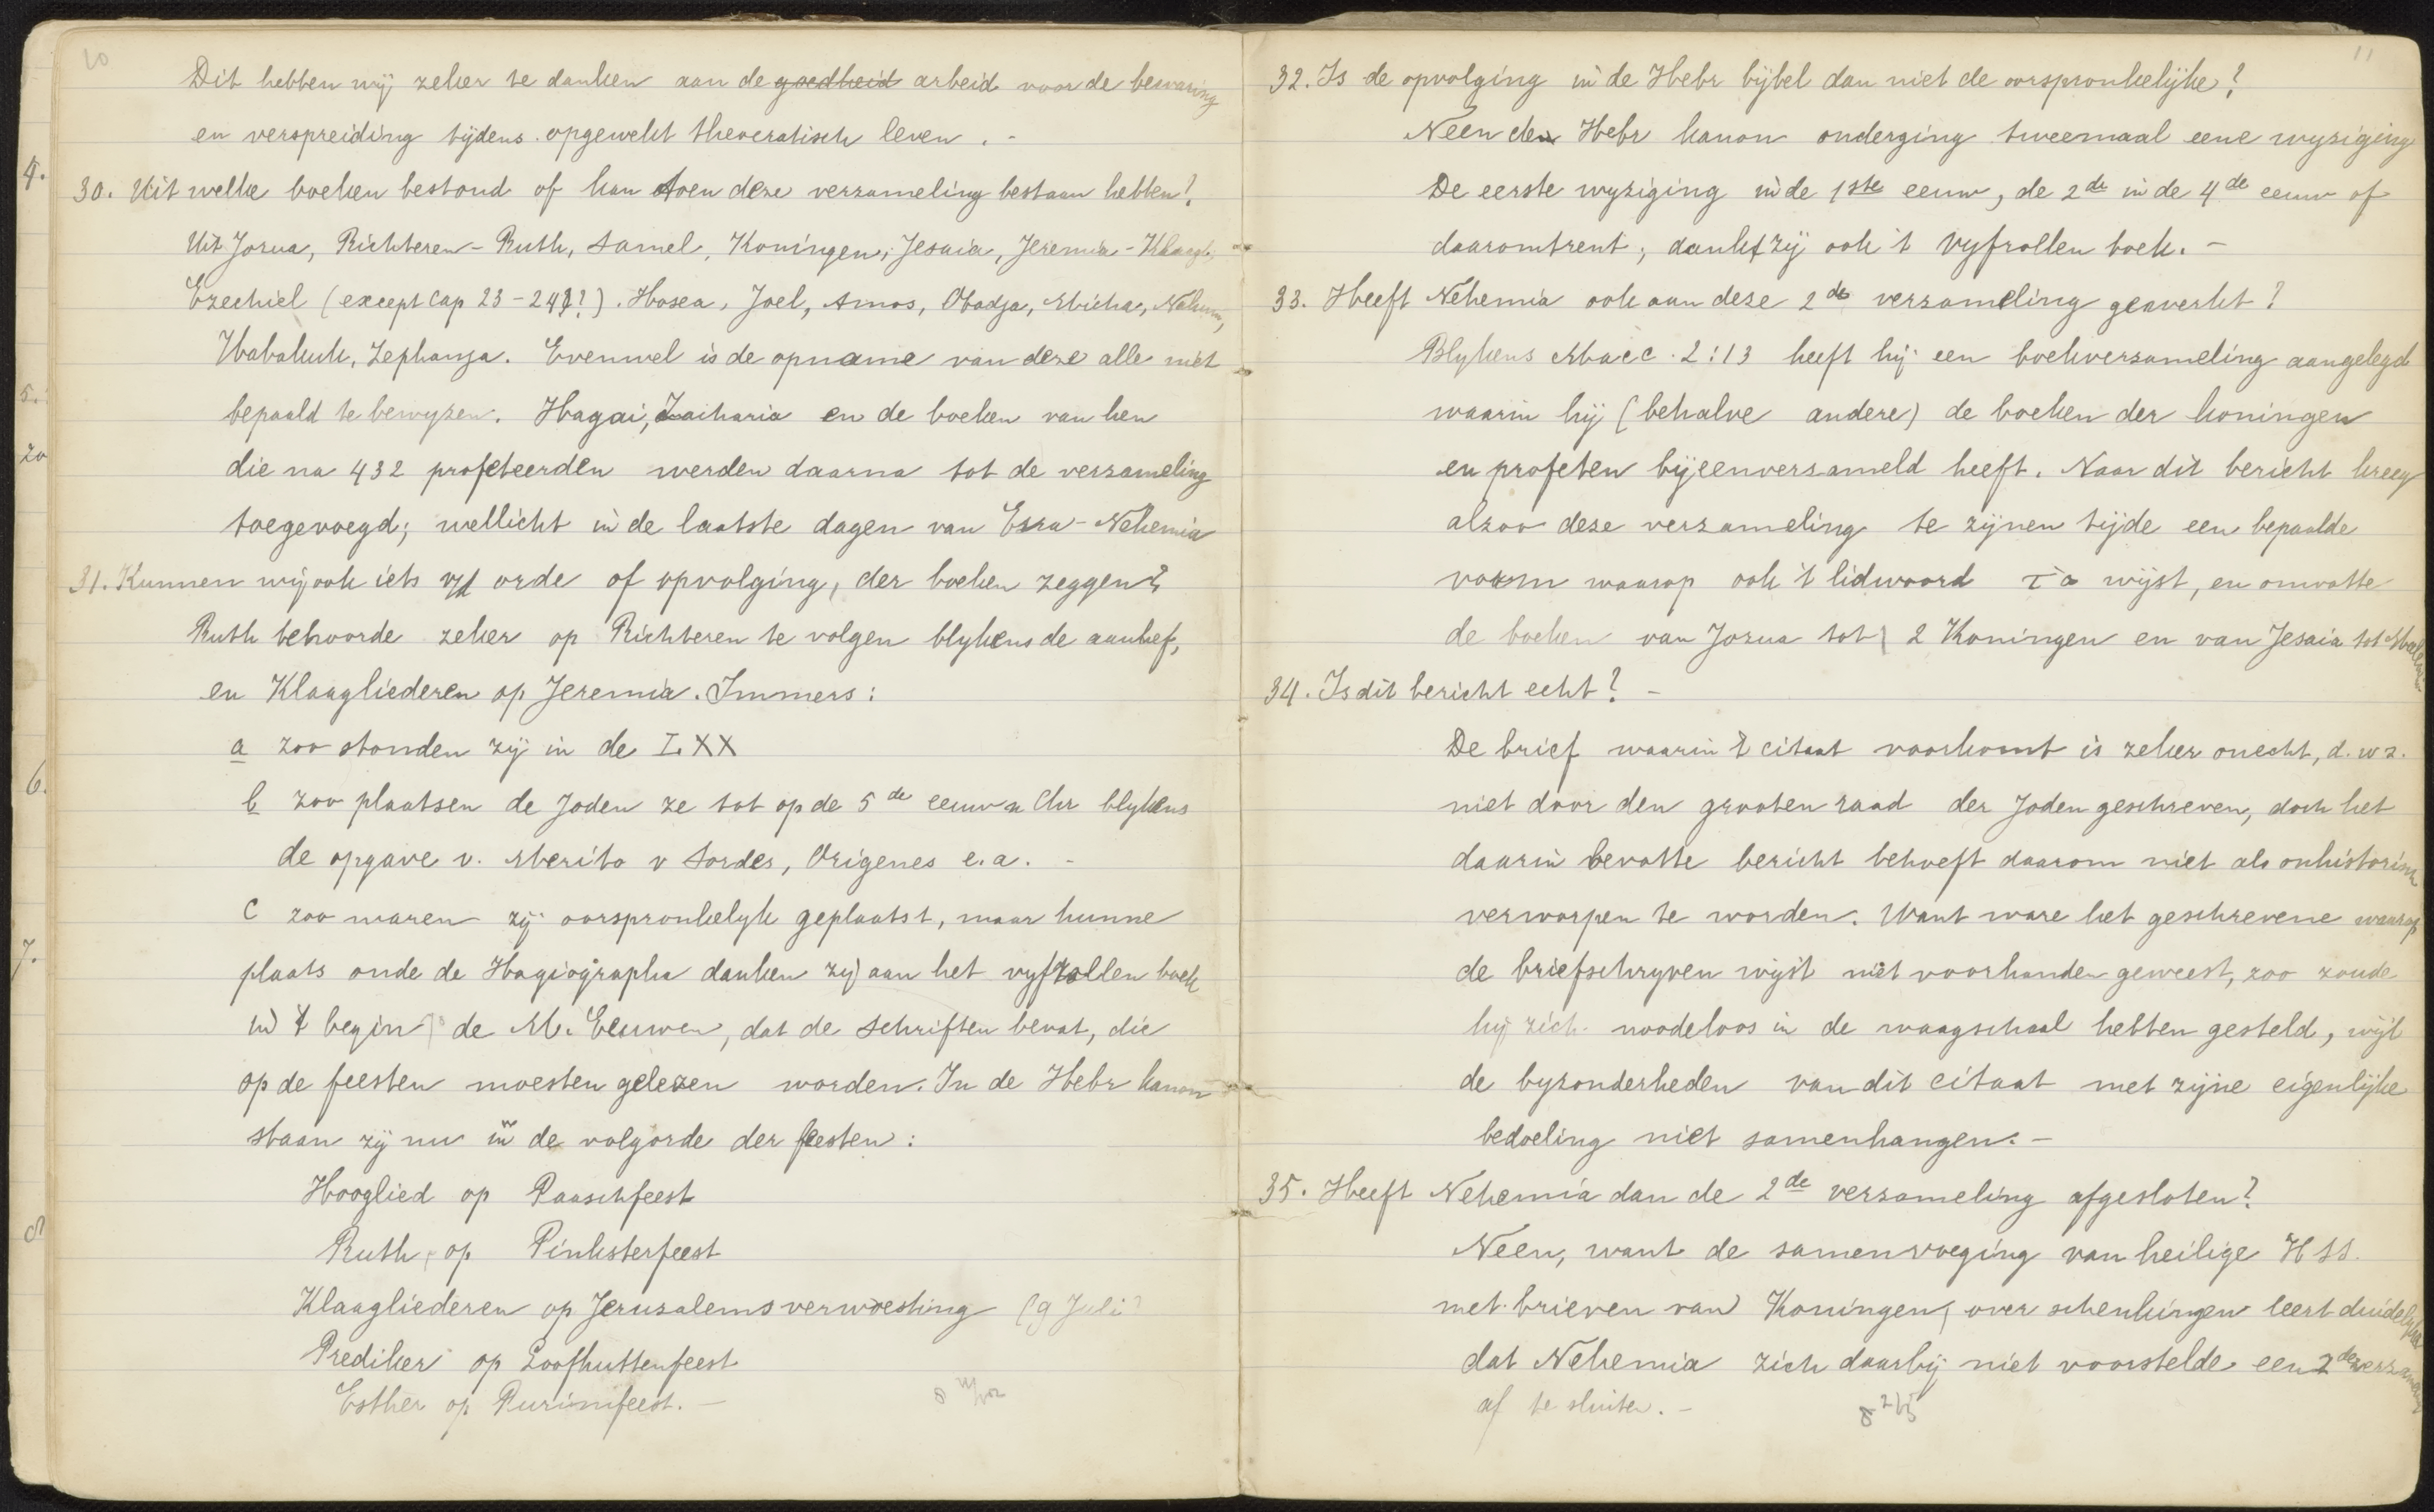 10
Dit hebben wij zeker te danken aan de goedheid arbeid voor de bewaring
en verspreiding tijdens opgewekt theocratisch leven. -
30. Uit welke boeken bestond of kan toen deze verzameling bestaan hebben?
Uit Josua, Richteren - Ruth, Samel, Koningen, Jesaia, Jeremia - Klaagl,
Ezechiel (except Cap 23 - 24?). Hosea, Joel, Amos, Obadja, Micha, Nahum,
Habakuk, Zephanja. Evenwel is de opname van deze alle niet
bepaald te bewyzen. Hagai, Zacharia en de boeken van hen
die na 432 profeteerden werden daarna tot de verzameling
toegevoegd; wellicht in de laatste dagen van Esra - Nehemia
31. Kunnen wij ook iets v/d orde of opvolging, der boeken zeggen?
Ruth behoorde zeker op Richteren te volgen blykens de aanhef,
en Klaagliederen op Jeremia. Immers:
a zoo stonden zij in de LXX
b zoo plaatsen de Joden ze tot op de 5de eeuw n Chr blykens
de opgave v. Merito v Sardes, Origenes e.a. -
c zoo waren zij oorspronkelyk geplaatst, maar hunne
plaats onde de Hagiographa danken zij aan het vyfrollen boek
in 't begin de M. Eeuwen, dat de schriften bevat, die
op de feesten moesten gelezen worden. In de Hebr kanon
staan zij nu in de volgorde der feesten:
Hooglied op Paaschfeest
Ruth op Pinksterfeest
Klaagliederen op Jerusalems verwoesting (9 Juli
Prediker op Loofhuttenfeest
Esther op Purimfeest. -
11
32. Is de opvolging in de Hebr bijbel dan niet de oorspronkelijke?
Neen den Hebr kanon onderging tweemaal eene wyziging
De eerste wyziging in de 1ste eeuw, de 2de in de 4de eeuw of
daaromtrent, dankt zij ook 't vyfrollen boek. -
33. Heeft Nehemia ook aan deze 2de verzameling gewerkt?
Blykens Macc. 2:13 heeft hij een boekverzameling aangelegd
waarin hij (behalve andere) de boeken der koningen
en profeten bijeenversameld heeft. Naar dit bericht kreeg
alzoo deze verzameling te zijnen tijde een bepaalde
vorm waarop ook 't lidwoord τὰ wijst, en omvatte
de boeken van Josua tot 2 Koningen en van Jesaia tot Maleachi
34. Is dit bericht echt? -
De brief waarin 't citaat voorkomt is zeker onecht, d.w.z.
niet door den grooten raad der Joden geschreven, doch het
daarin bevatte bericht behoeft daarom niet als onhistorisch
verworpen te worden. Want ware het geschrevene waarop
de briefschryven wijst niet voorhanden geweest, zoo zoude
hij zich noodeloos in de waagschaal hebben gesteld, wijl
de byzonderheden van dit citaat met zijne eigenlijke
bedoeling niet samenhangen. -
35. Heeft Nehemia dan de 2de verzameling afgesloten?
Neen, want de samenvoeging van heilige HSS.
met brieven van Koningen, over schenkingen leert duidelijker
dat Nehemia zich daarbij niet voorstelde een 2de verzameling
af te sluiten. -
4.
5.
20
6.
7.
8